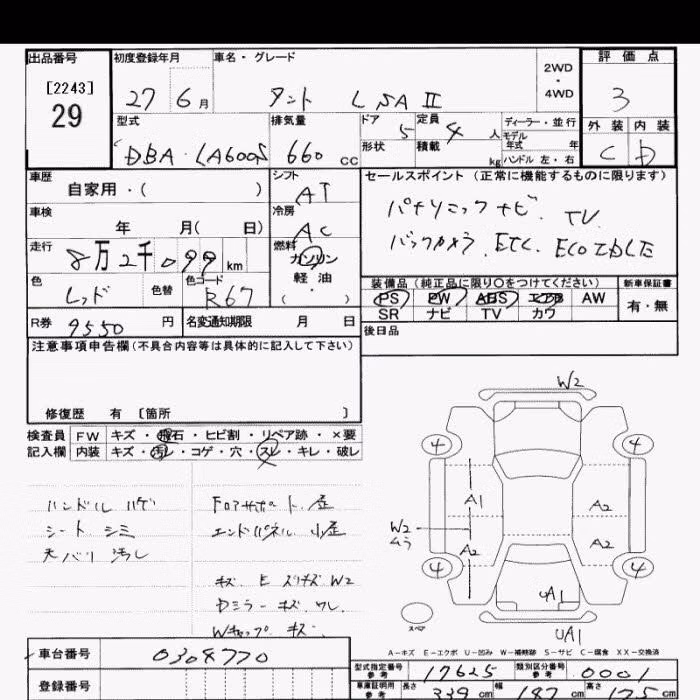 出品番号 初度登録年月 車名・グレード 2WD・4WD 評価点
[2243]
29
27 6月 タント LSAⅡ 3
型式 排気量 ドア 5 定員 4人 ディーラー・並行 外装 内装
DBA-LA600S 660cc 形状 積載 kg モデル年式 年 C D
ハンドル 左・右
車歴 シフト セールスポイント(正常に機能するものに限ります)
自家用・( ) AT
車検 冷房 パナソニックナビ. TV
年 月(日) AC バックカメラ. ETC. ECO IDLE
走行 燃料
8万2千099km ガソリン
軽油
・( )
装備品(純正品に限り○をつけてください) 新車保証書
色 色替 色コード PS PW ABS エアB AW 有・無
レッド R67 SR ナビ TV カワ
R券 9550円 名変通知期限 月 日 後日品
注意事項申告欄(不具合内容等は具体的に記入して下さい)
修復歴 有 [箇所 ]
検査員 FW キズ・飛石・ヒビ割・リペア跡・×要
記入欄 内装 キズ・汚レ・コゲ・穴・スレ・キレ・破レ
W2
4 4
ハンドル ハゲ Fロアサポート. 歪
シート シミ エンドパネル 小歪
天バリ 汚レ
A1 A2
W2
ムラ
A2 A2
4 4
キズ. E ズリキズ W2
Dミラー キズ. ワレ.
Wキャップ キズ.
UA1
スペア
UA1
A-キズ E-エクボ U-凹み W-補修跡 S-サビ C-腐食 XX-交換済
車台番号 0304770
型式指定番号 参考 17625 類別区分番号 参考 0001
登録番号
車庫証明用 参考 長さ 339cm 幅 147cm 高さ 175cm